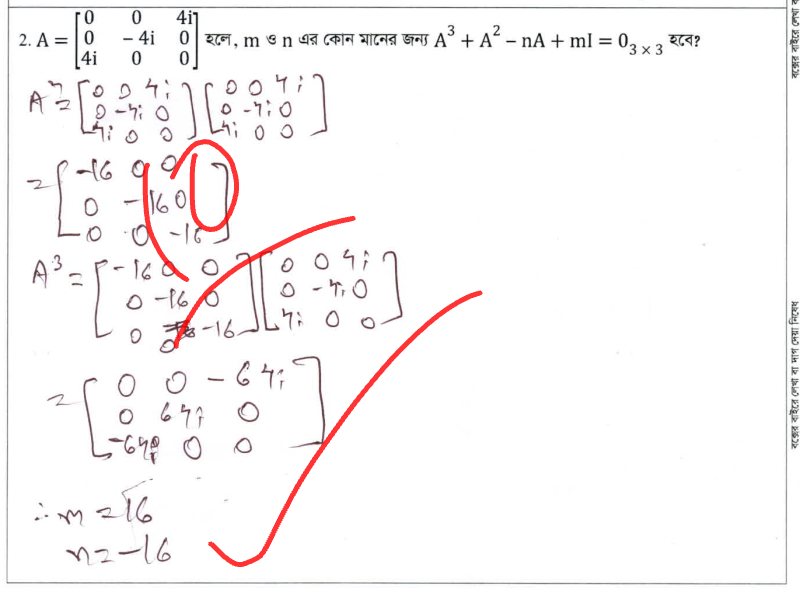 2. A = [0 0 4i
0 - 4i 0
4i 0 0] হলে, m ও n এর কোন মানের জন্য A³ + A² – nA + mI = 0₃ₓ₃ হবে?
A² = [0 0 4i [0 0 4i
0 -4i 0] 0 -4i 0]
4i 0 0] 4i 0 0]
= [-16 0 0
0 -16 0
0 0 -16]
A³ = [-16 0 0 [0 0 4i
0 -16 0] 0 -4i 0]
0 0 -16] 4i 0 0]
= [0 0 -64i
0 64i 0
-64i 0 0]
∴ m = 16
n = -16
বক্সের বাইরে লেখা বা দাগ দেয়া নিষেধ
বক্সের বাইরে লেখা ব